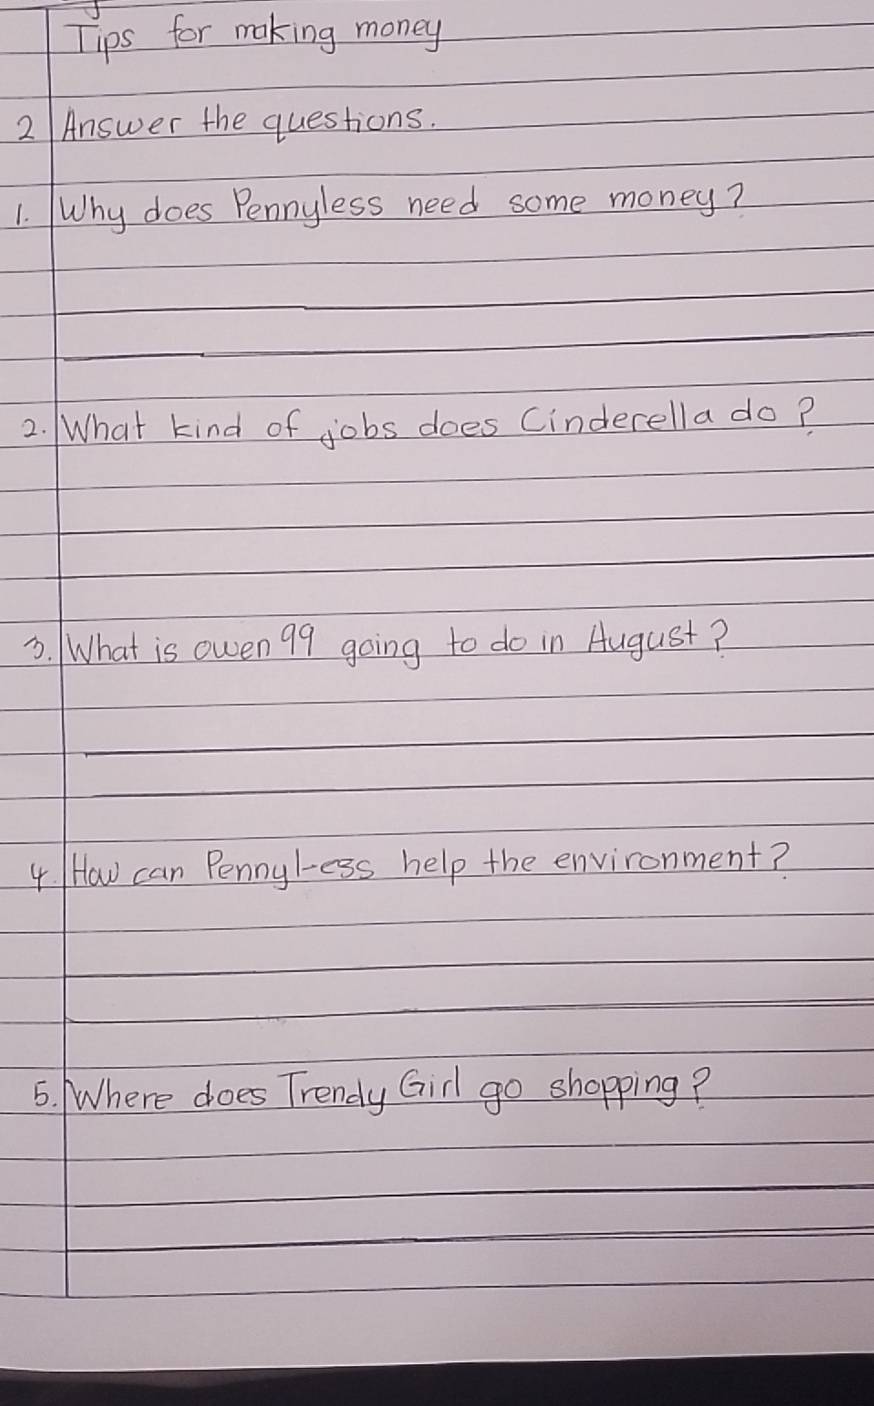 Tips for making money
2 Answer the questions.
1. Why does Pennyless need some money?
2. What kind of jobs does Cinderella do?
3. What is owen 99 going to do in August?
4. How can Pennyless help the environment?
5. Where does Trendy Girl go shopping?